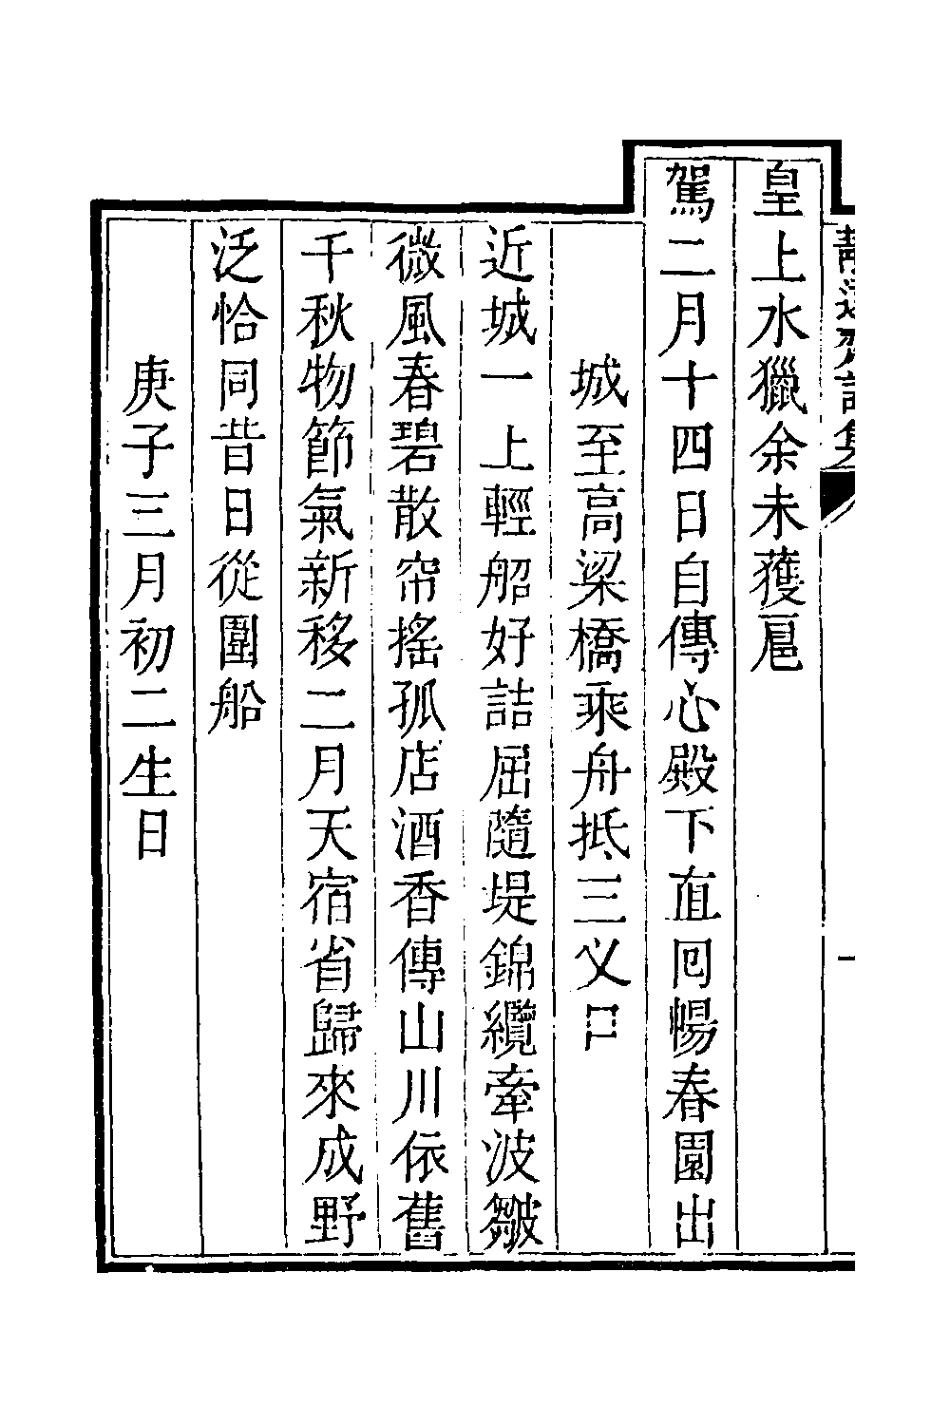 皇上水獵余未獲扈
駕二月十四日自傳心殿下直囘暢春園出
城至高梁橋乘舟抵三义口
近城一上輕船好詰屈隨堤錦纜牽波皺
微風春碧散帘搖孤店酒香傳山川依舊
千秋物節氣新移二月天宿省歸來成野
泛恰同昔日從圍船
庚子三月初二生日